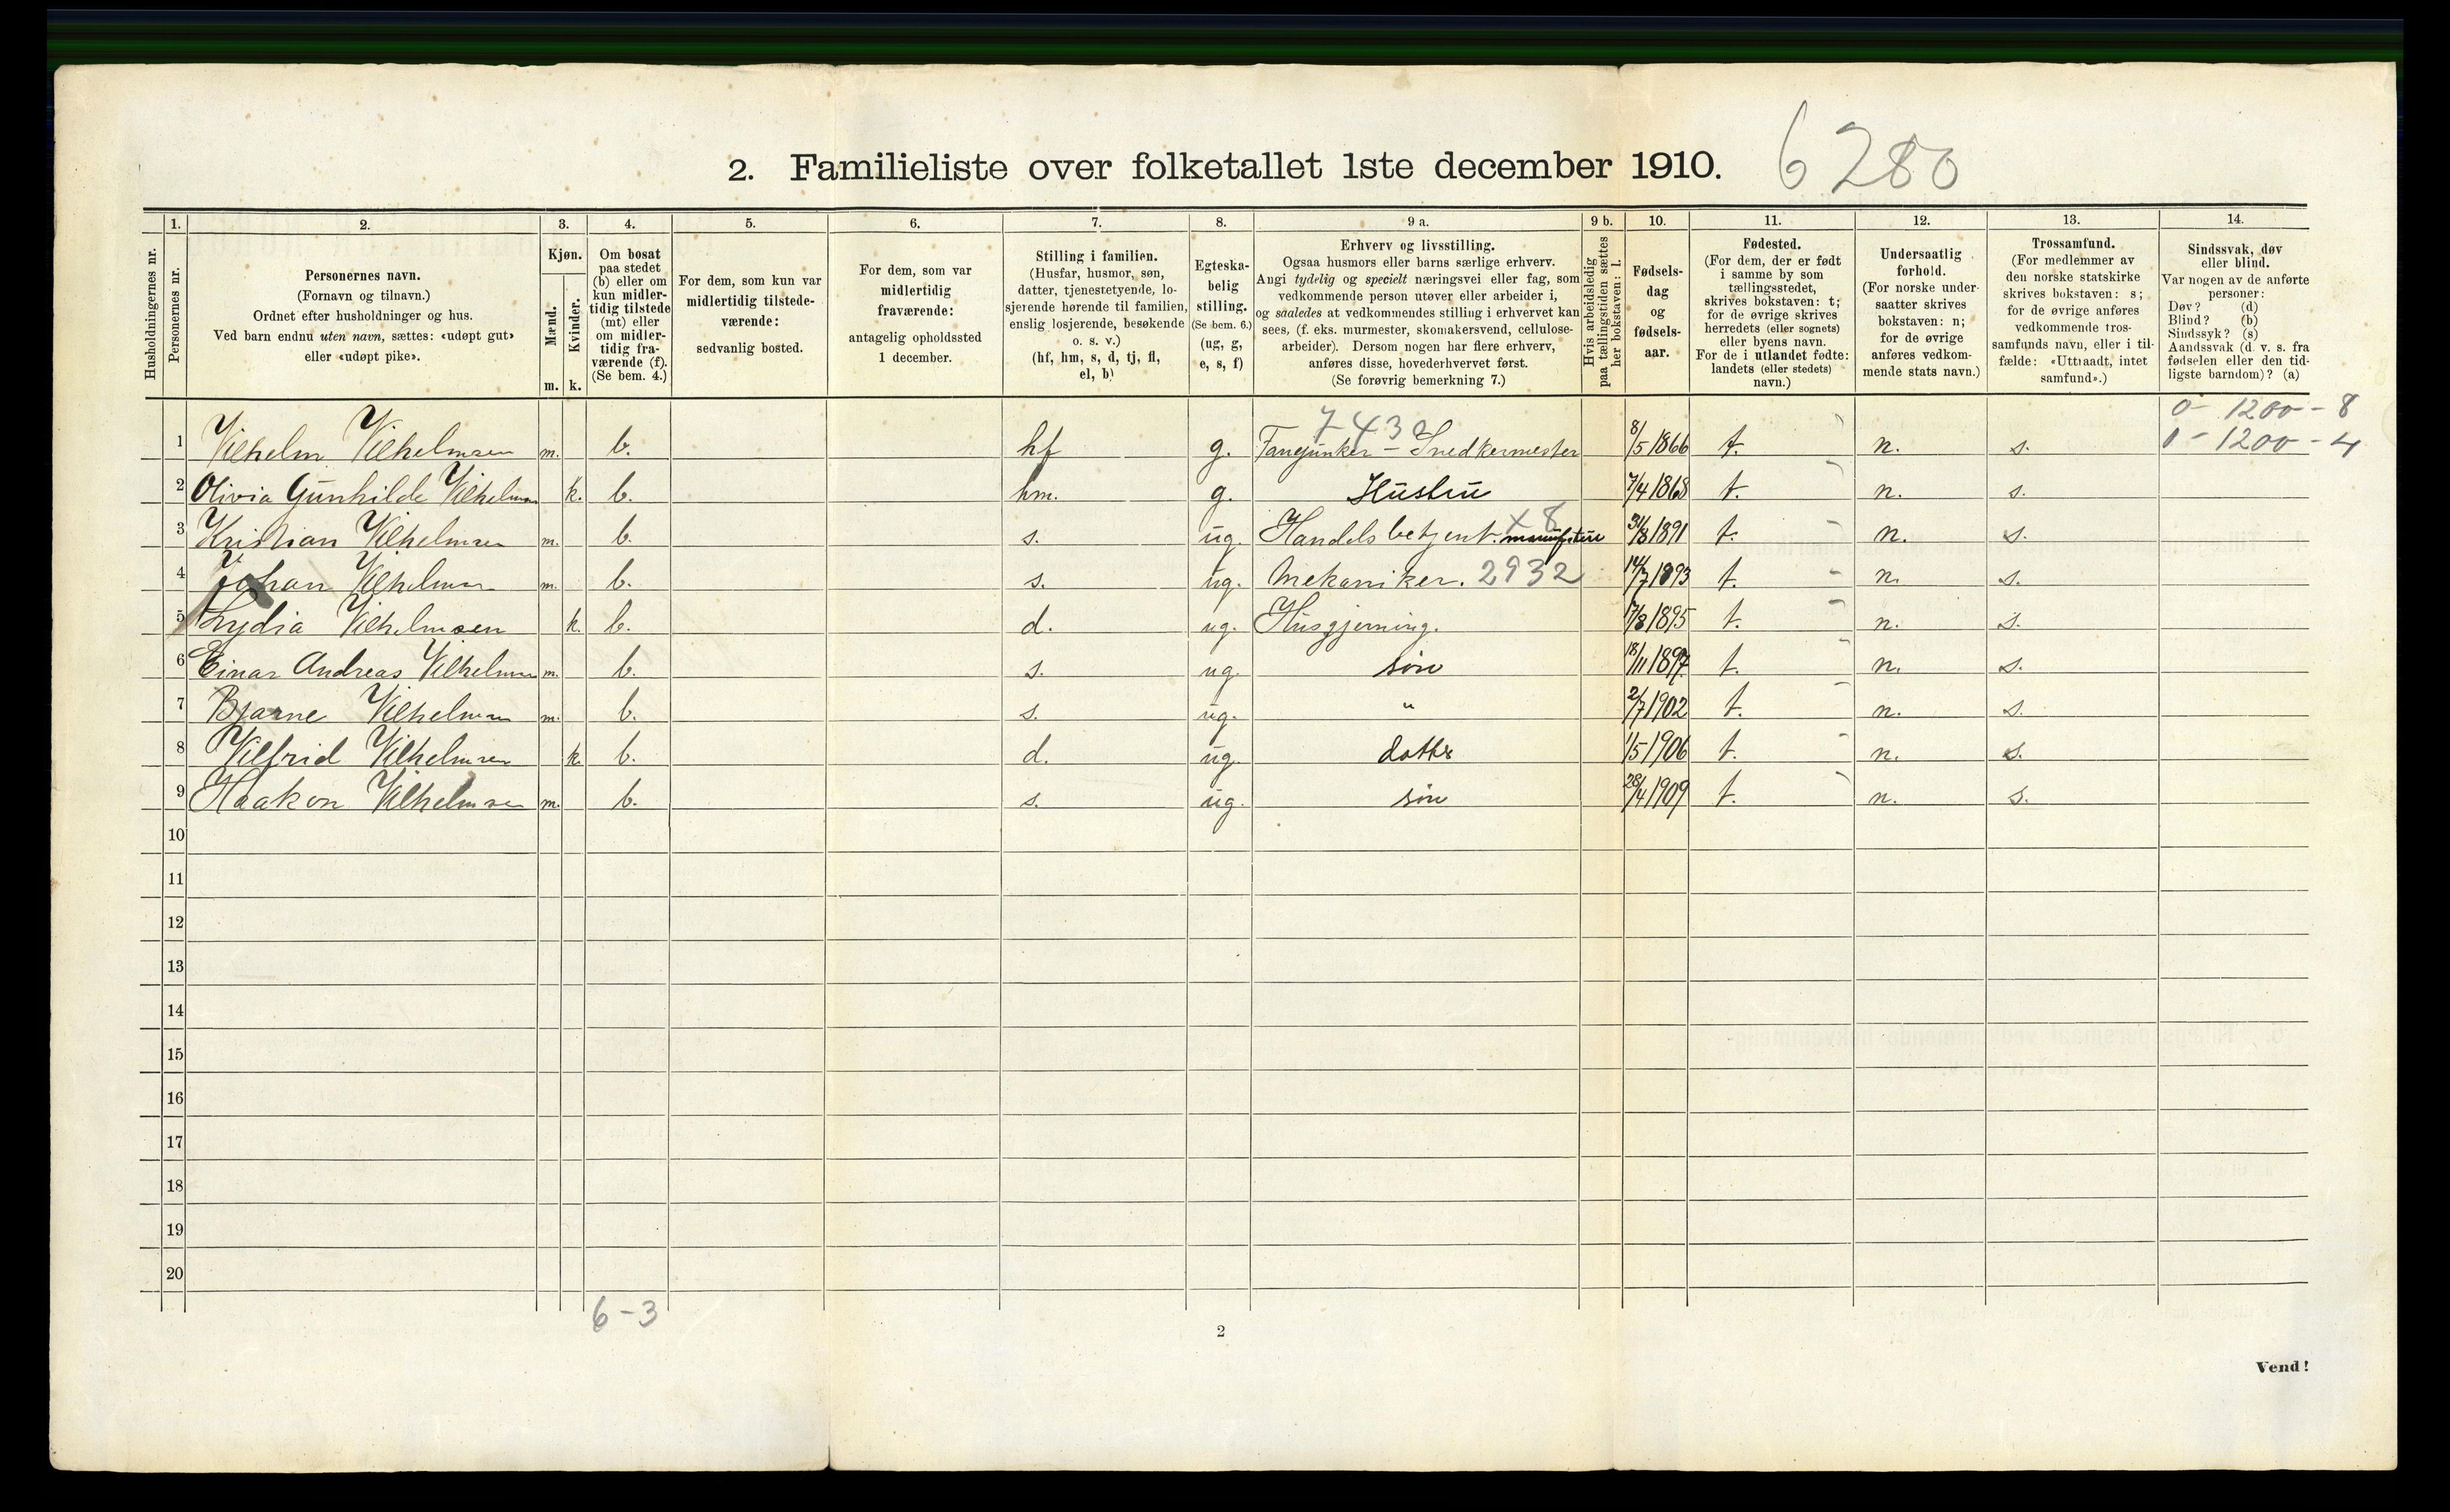 2. Familieliste over folketallet 1ste december 1910. 6280
1. 2. 3. 4. 5. 6. 7. 8. 9 a. 9 b. 10. 11. 12. 13. 14.
Husholdningernes nr.
Personernes nr.
Personernes navn.
(Fornavn og tilnavn.)
Ordnet efter husholdninger og hus.
Ved barn endnu uten navn, sættes: «udøpt gut»
eller «udøpt pike».
Kjøn.
Mænd.
Kvinder.
m. k.
Om bosat
paa stedet
(b) eller om
kun midler-
tidig tilstede
(mt) eller
om midler-
tidig fra-
værende (f).
(Se bem. 4.)
For dem, som kun var
midlertidig tilstede-
værende:
sedvanlig bosted.
For dem, som var
midlertidig
fraværende:
antagelig opholdssted
1 december.
Stilling i familien.
(Husfar, husmor, søn,
datter, tjenestetyende, lo-
sjerende hørende til familien,
enslig losjerende, besøkende
o. s. v.)
(hf, hm, s, d, tj, fl,
el, b)
Egteska-
belig
stilling.
(Se bem. 6.)
(ug, g,
e, s, f)
Erhverv og livsstilling.
Ogsaa husmors eller barns særlige erhverv.
Angi tydelig og specielt næringsvei eller fag, som
vedkommende person utøver eller arbeider i,
og saaledes at vedkommendes stilling i erhvervet kan
sees, (f. eks. murmester, skomakersvend, cellulose-
arbeider). Dersom nogen har flere erhverv,
anføres disse, hovederhvervet først.
(Se forøvrig bemerkning 7.)
Hvis arbeidsledig
paa tællingstiden sættes
her bokstaven: l.
Fødsels-
dag
og
fødsels-
aar.
Fødested.
(For dem, der er født
i samme by som
tællingsstedet,
skrives bokstaven: t;
for de øvrige skrives
herredets (eller sognets)
eller byens navn.
For de i utlandet fødte:
landets (eller stedets)
navn.)
Undersaatlig
forhold.
(For norske under-
saatter skrives
bokstaven: n;
for de øvrige
anføres vedkom-
mende stats navn.)
Trossamfund.
(For medlemmer av
den norske statskirke
skrives bokstaven: s;
for de øvrige anføres
vedkommende tros-
samfunds navn, eller i til-
fælde: «Uttraadt, intet
samfund».)
Sindssvak, døv
eller blind.
Var nogen av de anførte
personer:
Døv? (d)
Blind? (b)
Sindssyk? (s)
Aandssvak (d. v. s. fra
fødselen eller den tid-
ligste barndom)? (a)
7432 0 - 1200 - 8
1 Vilhelm Vilhelmsen m. b. hf g. Fanejunker - Snedkermester 8/5 1866 t. n. s. 0 - 1200 - 4
2 Olivia Gunhilde Vilhelmsen k. b. hm. g. Hustru 7/4 1868 t. n. s.
x 8
3 Kristian Vilhelmsen m. b. s. ug. Handelsbetjent. manufaktur 31/8 1891 t. n. s.
4 Johan Vilhelmsen m. b. s. ug. Mekaniker. 2932 14/7 1893 t. n. s.
5 Lydia Vilhelmsen k. b. d. ug. Husgjerning. 17/8 1895 t. n. s.
6 Einar Andreas Vilhelmsen m. b. s. ug. søn 18/11 1897 t. n. s.
7 Bjarne Vilhelmsen m. b. s. ug. " 2/7 1902 t. n. s.
8 Vilfrid Vilhelmsen k. b. d. ug. datter 1/5 1906 t. n. s.
9 Haakon Vilhelmsen m. b. s. ug. søn 28/4 1909 t. n. s.
10
11
12
13
14
15
16
17
18
19
20
6 - 3
2
Vend!